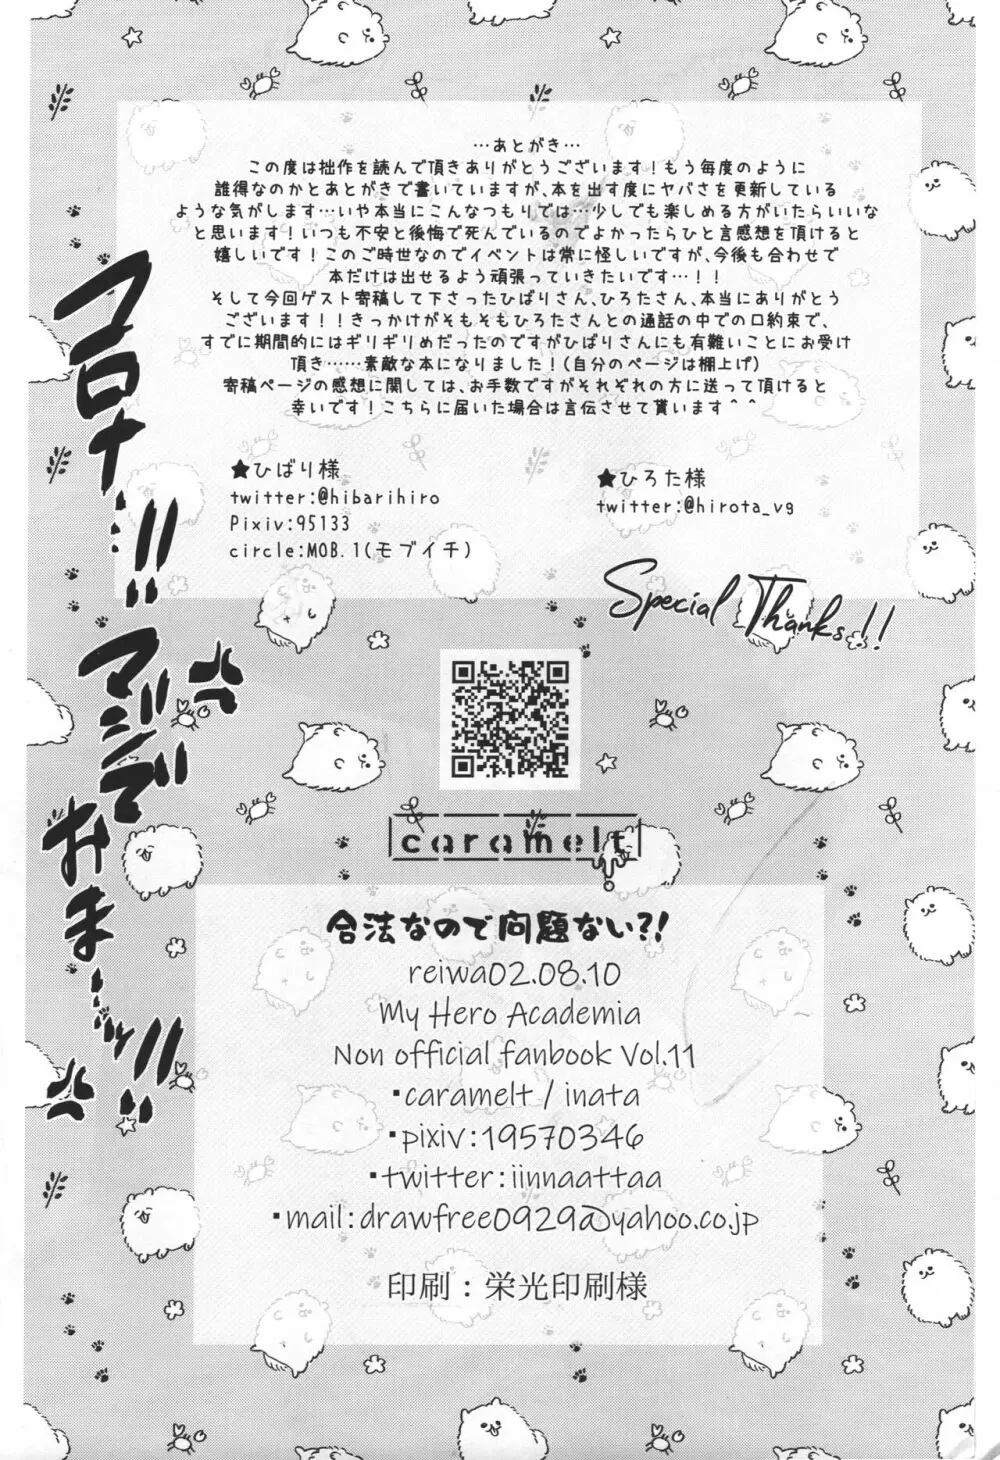 …あとがき…
この度は拙作を読んで頂きありがとうございます！もう毎度のように
誰得なのかとあとがきで書いていますが、本を出す度にヤバさを更新している
ような気がします…いや本当にこんなつもりでは…少しでも楽しめる方がいたらいいな
と思います！いつも不安と後悔で死んでいるのでよかったらひと言感想を頂けると
嬉しいです！このご時世なのでイベントは常に怪しいですが、今後も合わせで
本だけは出せるよう頑張っていきたいです…！！
そして今回ゲスト寄稿して下さったひばりさん、ひろたさん、本当にありがとう
ございます！！きっかけがそもそもひろたさんとの通話の中での口約束で、
すでに期間的にはギリギリめだったのですがひばりさんにも有難いことにお受け
頂き……素敵な本になりました！(自分のページは棚上げ)
寄稿ページの感想に関しては、お手数ですがそれぞれの方に送って頂けると
幸いです！こちらに届いた場合は言伝させて貰います＾＾
★ひばり様
twitter:@hibarihiro
Pixiv:95133
circle:MOB.1(モブイチ)
★ひろた様
twitter:@hirota_vg
Special Thanks!!
コロナ…!!
マジで
おまーッ!!
caramelt
合法なので問題ない?!
reiwa02.08.10
My Hero Academia
Non official fanbook Vol.11
・caramelt / inata
・pixiv:19570346
・twitter:iinnaattaa
・mail:drawfree0929@yahoo.co.jp
印刷：栄光印刷様